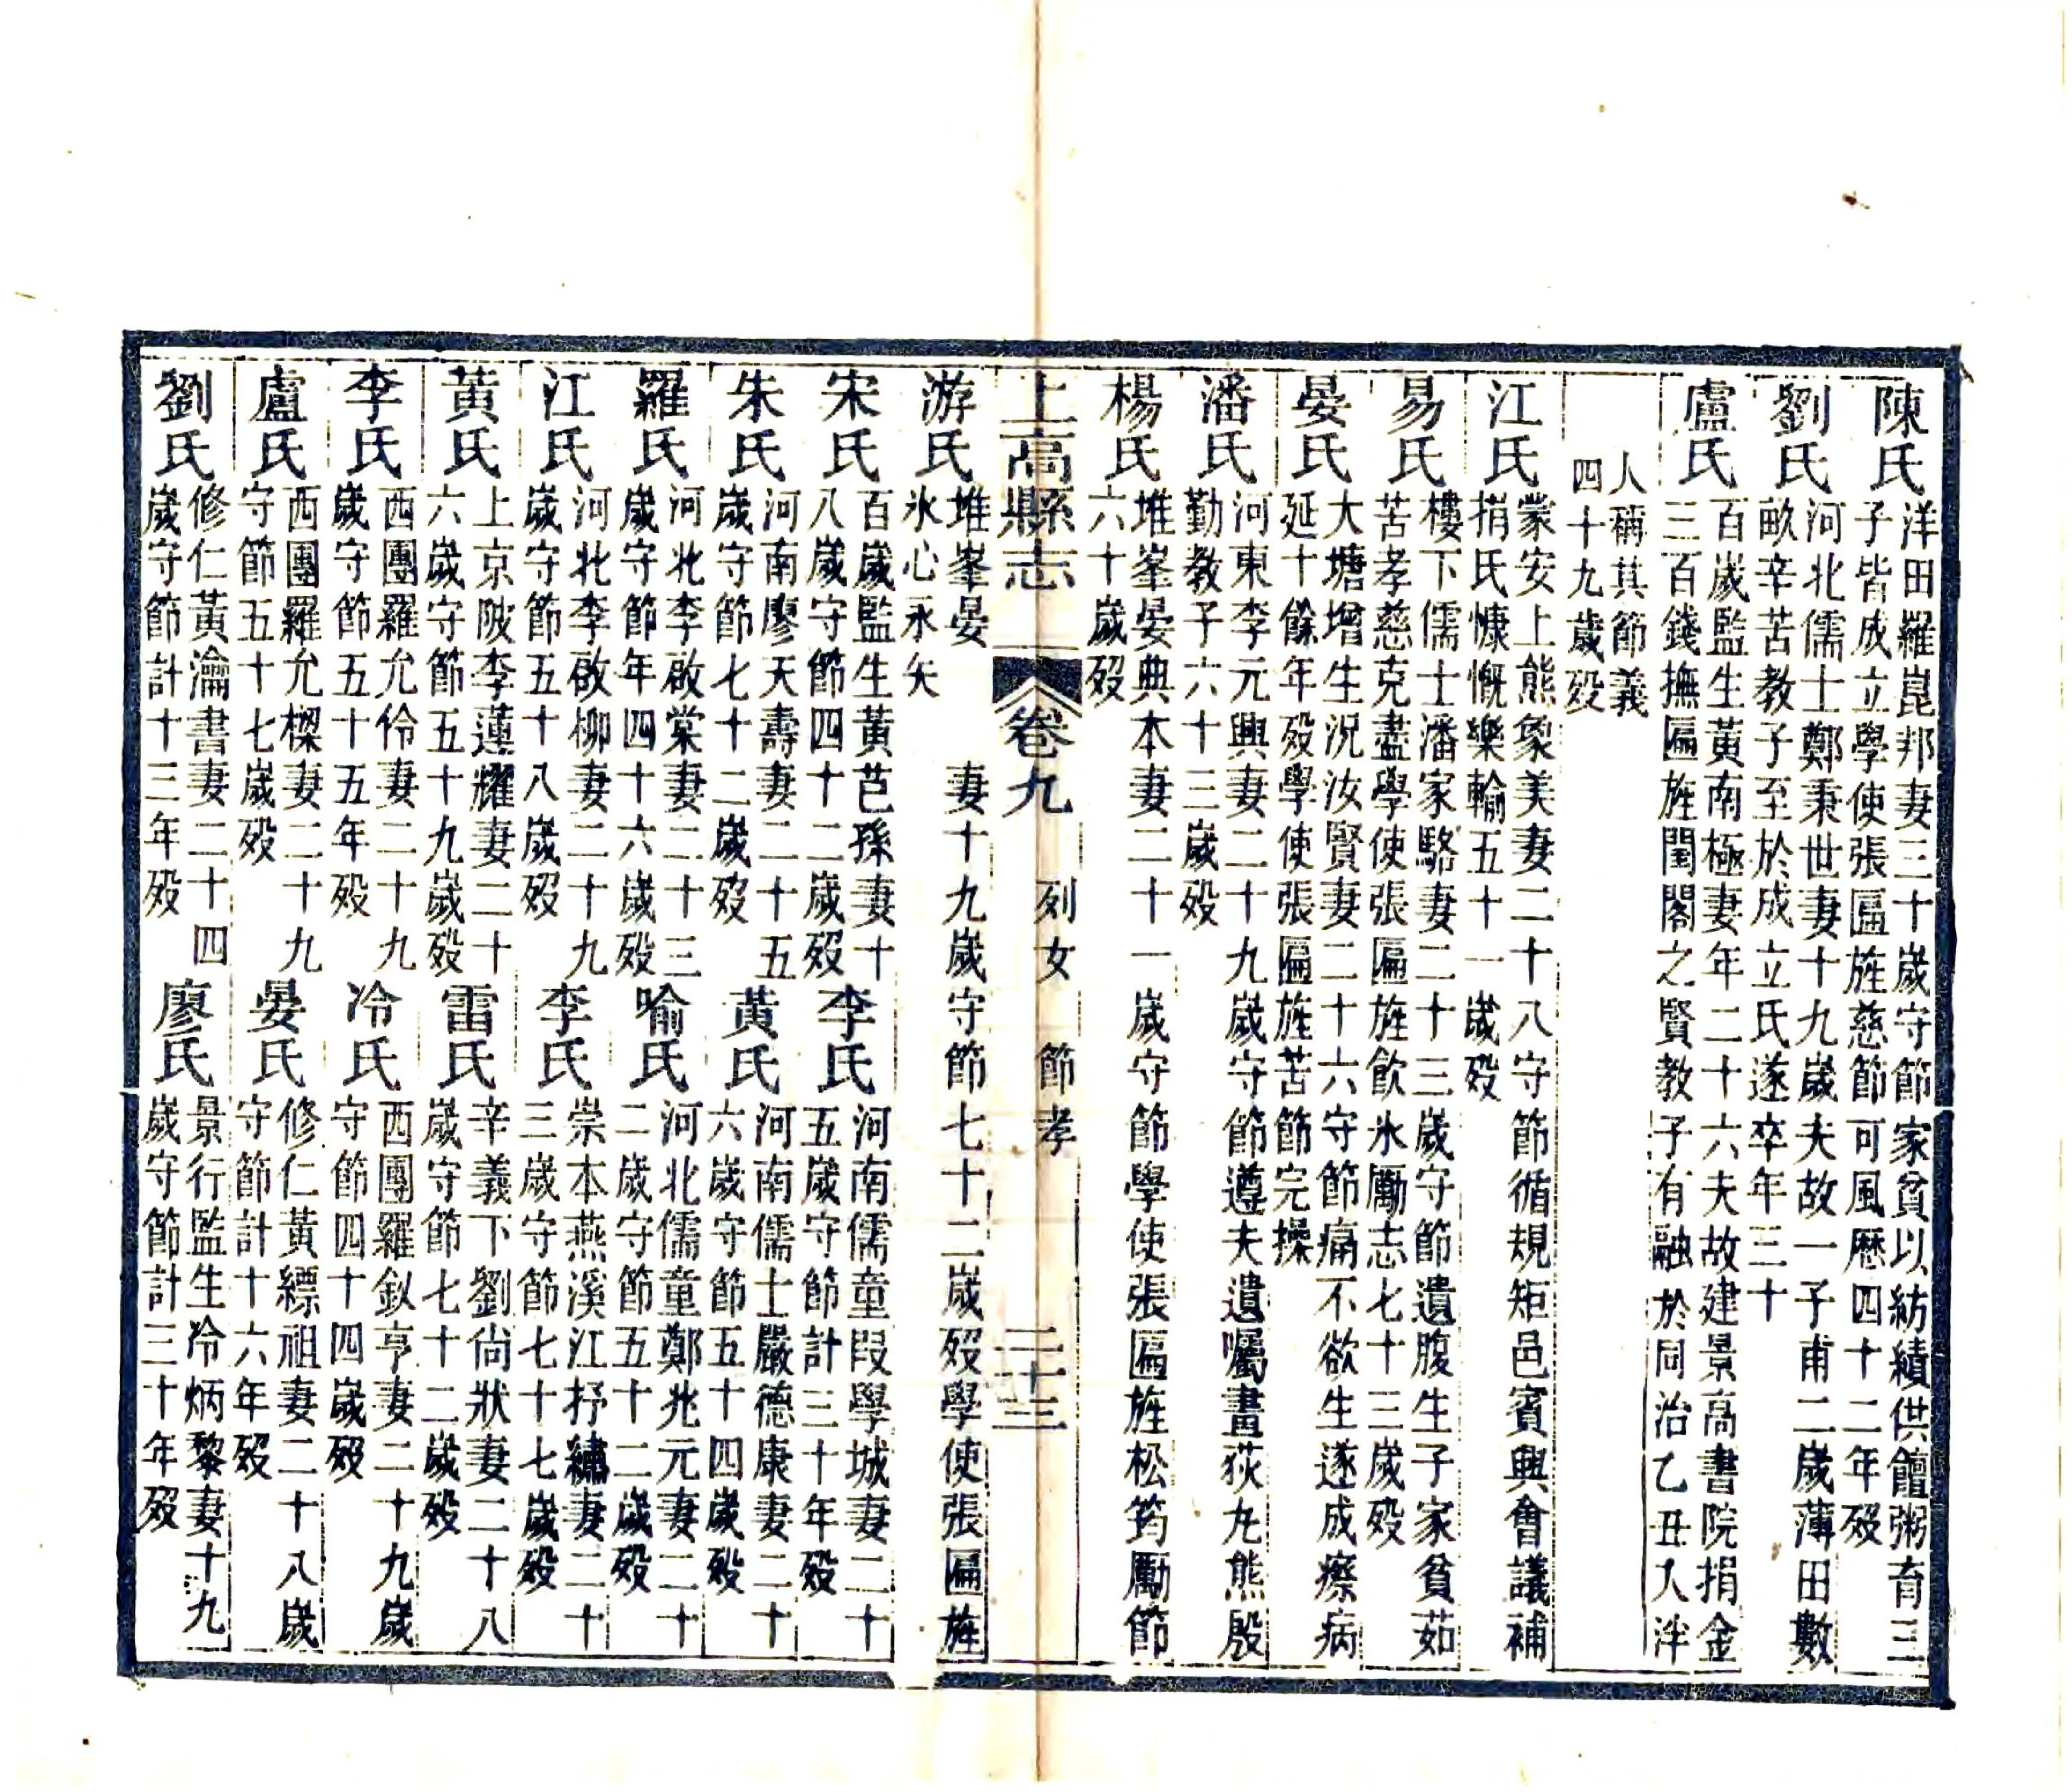 陳氏
洋田羅崑邦妻三十歲守節家貧以紡績供饘粥育三
子皆成立學使張匾旌慈節可風歷四十二年歿
劉氏
河北儒士鄭秉世妻十九歲夫故一子甫二歲薄田數
畝辛苦教子至於成立氏遂卒年三十
盧氏
百歲監生黃南極妻年二十六夫故建景高書院捐金
三百錢撫匾旌閨閣之賢教子有融於同治乙丑入泮
人稱其節義
四十九歲歿
江氏
蒙安上熊象美妻二十八守節循規矩邑賓興會議補
捐氏慷慨樂輸五十一歲歿
易氏
樓下儒士潘家駱妻二十三歲守節遺腹生子家貧茹
苦孝慈克盡學使張匾旌飲氷勵志七十三歲歿
晏氏
大塘增生況汝賢妻二十六守節痛不欲生遂成瘵病
延十餘年歿學使張匾旌苦節完操
潘氏
河東李元興妻二十九歲守節遵夫遺囑畫荻丸熊殷
勤教子六十三歲歿
楊氏
堆峯晏典本妻二十一歲守節學使張匾旌松筠勵節
六十歲歿
上高縣志 卷九 列女 節孝 二十三
游氏
堆峯晏 妻十九歲守節七十二歲歿學使張匾旌
氷心永矢
宋氏
百歲監生黃芑孫妻十
八歲守節四十二歲歿
李氏
河南儒童段學城妻二十
五歲守節計三十年歿
朱氏
河南廖天壽妻二十五
歲守節七十二歲歿
黃氏
河南儒士嚴德康妻二十
六歲守節五十四歲歿
羅氏
河北李啟棠妻二十三
歲守節年四十六歲歿
喻氏
河北儒童鄭兆元妻二十
二歲守節五十二歲歿
江氏
河北李啟柳妻二十九
歲守節五十八歲歿
李氏
崇本燕溪江抒繡妻二十
三歲守節七十七歲歿
黃氏
上京陂李蓮耀妻二十
六歲守節五十九歲歿
雷氏
辛義下劉尙狀妻二十八
歲守節七十二歲歿
李氏
西團羅允伶妻二十九
歲守節五十五年歿
冷氏
西團羅釱亨妻二十九歲
守節四十四歲歿
盧氏
西團羅允樑妻二十九
守節五十七歲歿
晏氏
修仁黃縹祖妻二十八歲
守節計十六年歿
劉氏
修仁黃瀹書妻二十四
歲守節計十三年歿
廖氏
景行監生冷炳黎妻十九
歲守節計三十年歿